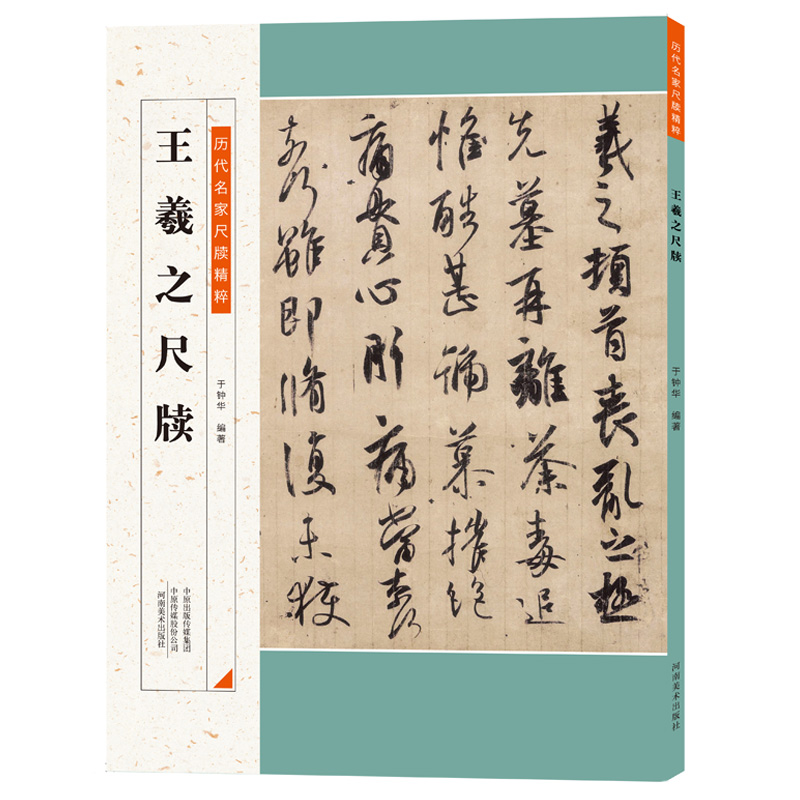 历代名家尺牍精粹
王羲之尺牍
于钟华 编著
中原出版传媒集团
中原传媒股份公司
河南美术出版社
羲之顿首丧乱之极
先墓再离荼毒追
惟酷甚号慕摧绝
痛贯心肝痛当奈何
奈何虽即脩复未获
历代名家尺牍精粹
王羲之尺牍
于钟华 编著
河南美术出版社